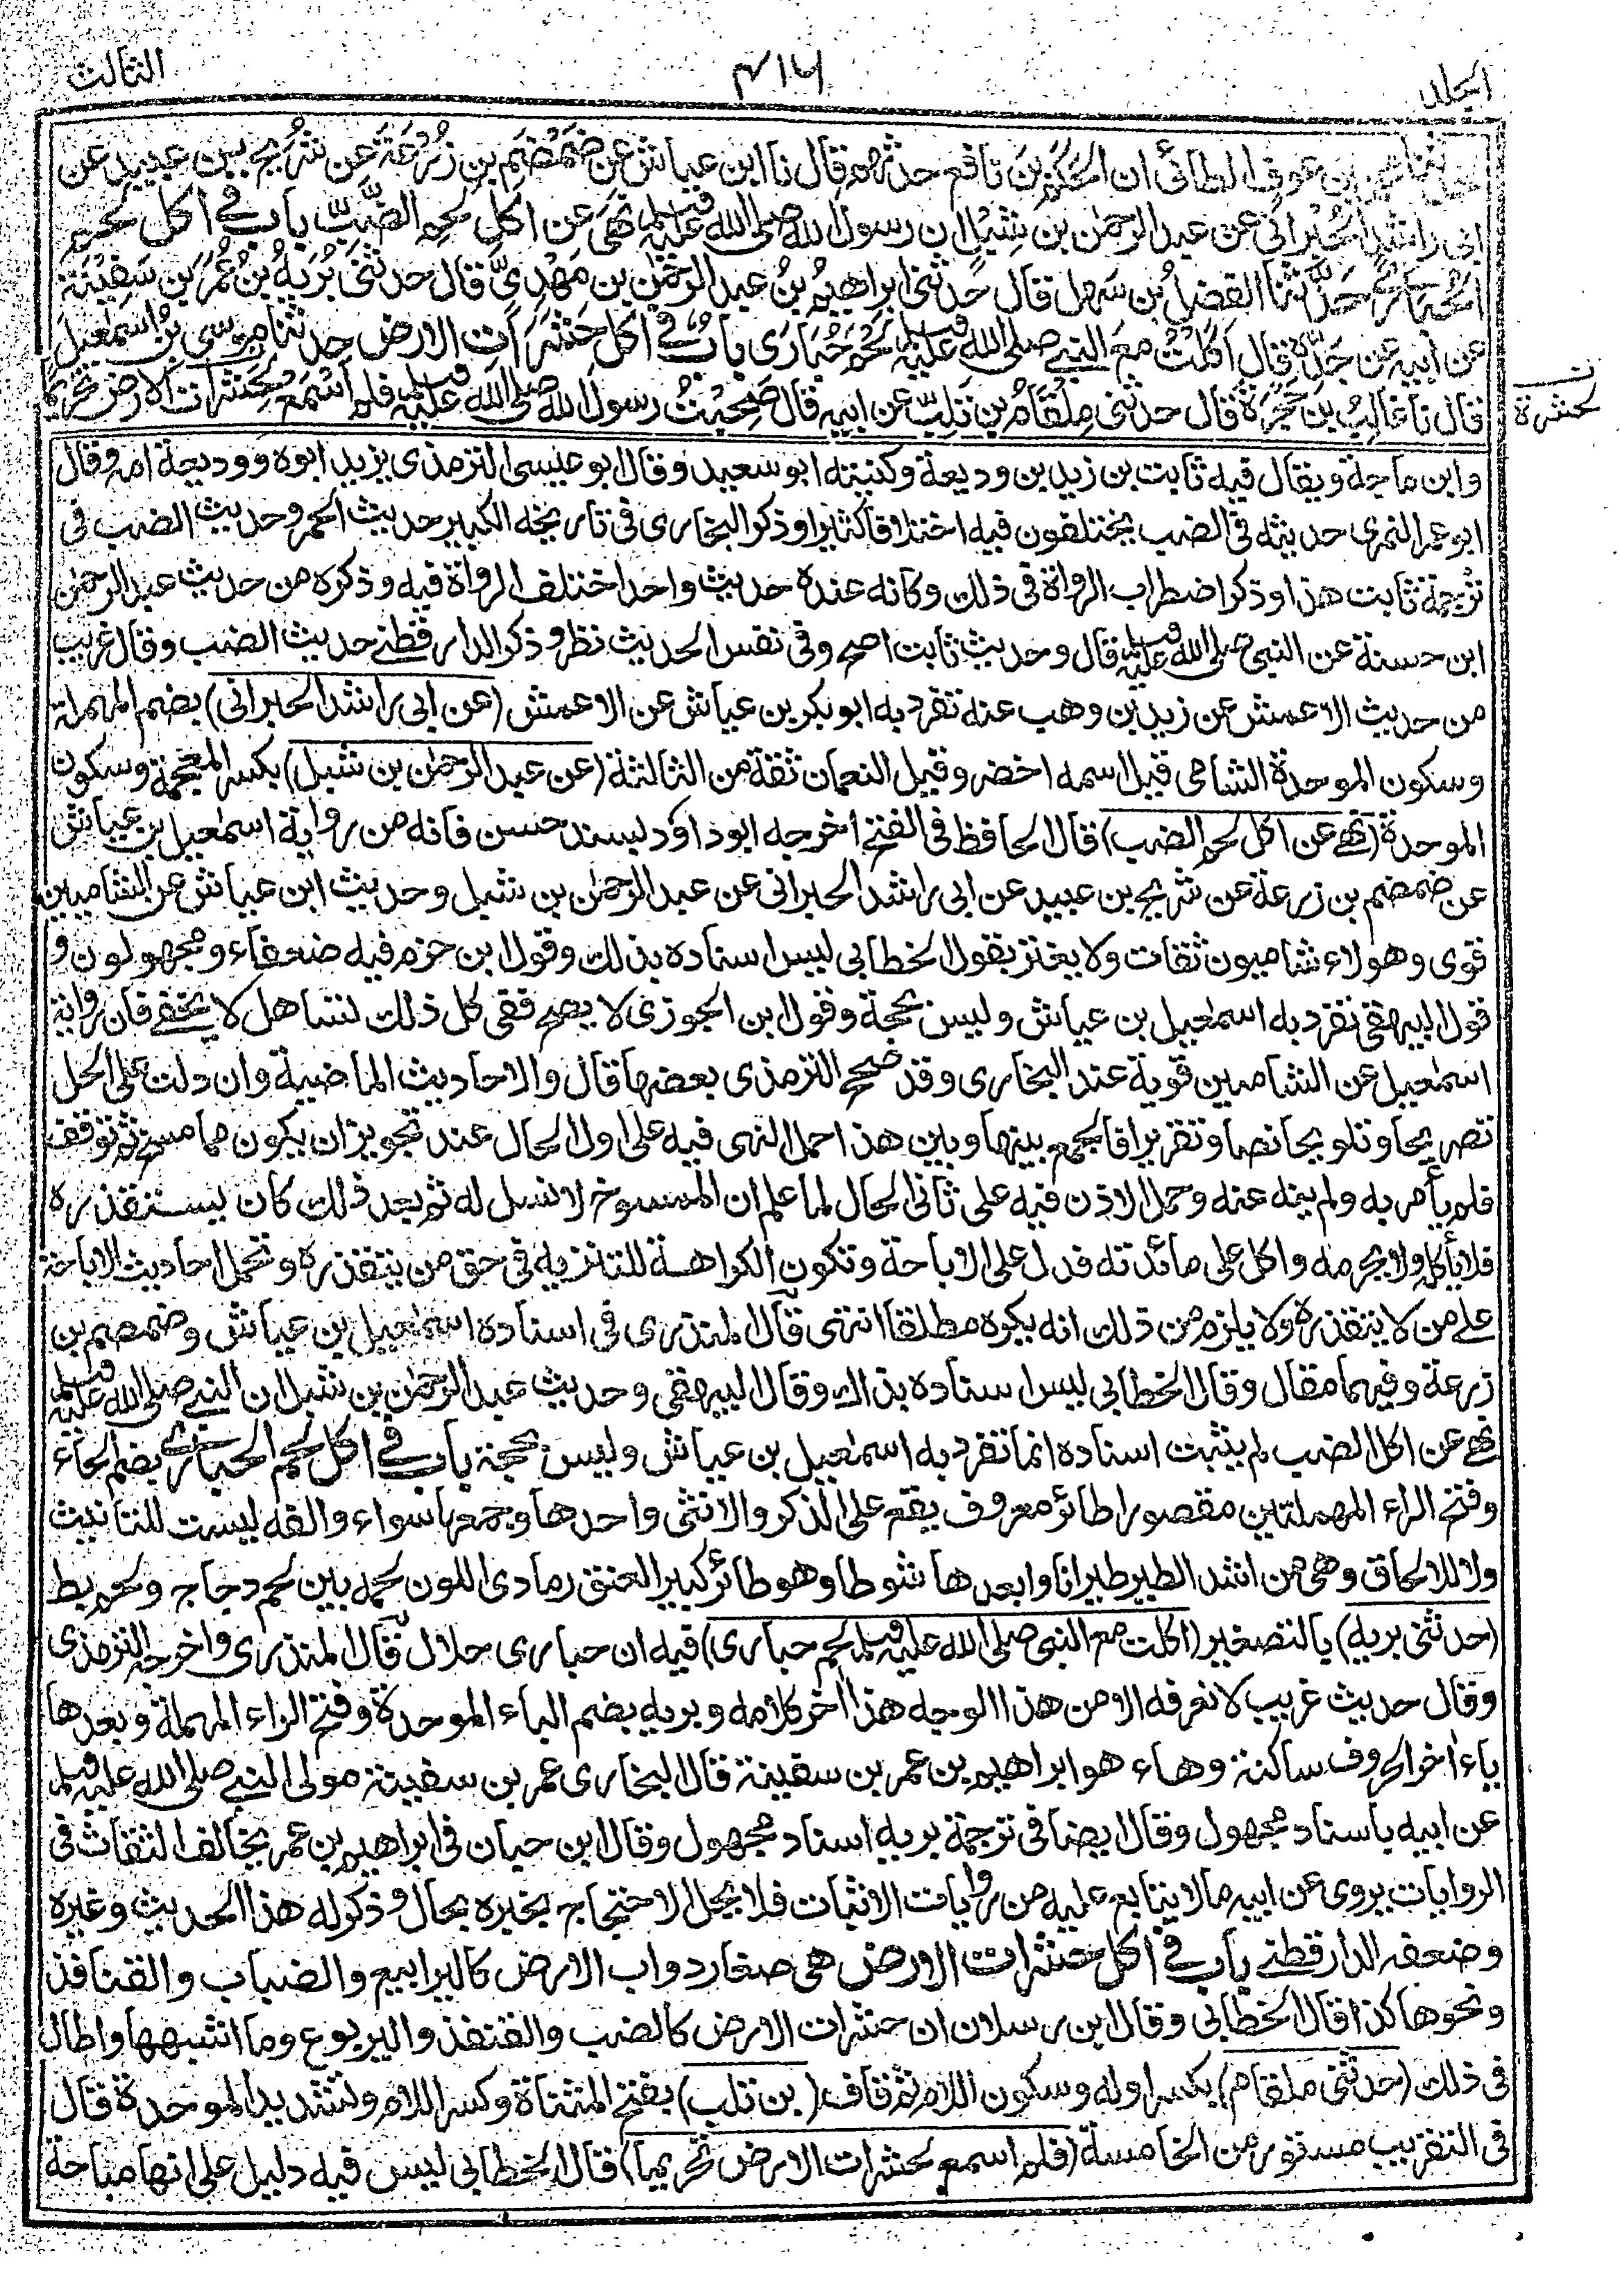 المجلد
۴۱۶
الثالث
حدثنا محمد بن عوف الطائی ان الحکم بن نافع حدثهم قال نا ابن عیاش عن ضَمْضَم بن زُرْعَةَ عن شُرَیح بن عبید عن
ابی راشد الحُبْرانی عن عبد الرحمٰن بن شِبْلٍ ان رسول الله صلی الله علیه وسلم نَهٰی عن اَکْلِ لحم الضَّبِّ باب فی اکل لحم
الحباری حَدَّثنا الفضل بن سَهل قال حدثنی ابراهیم بنُ عبد الرحمٰن بن مَهْدِیٍّ قال حدثنی بُرَیْهُ بنُ عُمَرَ بن سَفِیْنَةَ
عن ابیه عن جَدِّهٖ قال اَکَلْتُ مع النبی صلی الله علیه وسلم لحم حُبَارٰی بابٌ فی اکل حَشَرَات الارض حدثنا موسی بن اسمٰعیل
قال نا غالِبُ بن حَجْرَةَ قال حدثنی مِلْقَامُ بن تَلِبٍّ عن ابیه قال صَحِبْتُ رسول الله صلی الله علیه وسلم فلم اَسْمَعْ لِحَشَرَات الارض تحریمًا
ن
لحشرة
وابن ماجة ویقال فیه ثابت بن زید بن ودیعة وکنیته ابو سعید وقال ابو عیسی الترمذی یزید ابوه وودیعة امه وقال
ابو عمر النمری حدیثه فی الضب یختلفون فیه اختلافا کثیرا وذکر البخاری فی تاریخه الکبیر حدیث الحمر وحدیث الضب فی
ترجمة ثابت هذا وذکر اضطراب الرواة فی ذلک وکانه عنده حدیث واحد اختلف الرواة فیه وذکره من حدیث عبد الرحمٰن
ابن حسنة عن النبی صلی الله علیه وسلم قال وحدیث ثابت اصح وفی نفس الحدیث نظر وذکر الدارقطنی حدیث الضب وقال غریب
من حدیث الاعمش عن زید بن وهب عنه تفرد به ابو بکر بن عیاش عن الاعمش (عن ابی راشد الحبرانی) بضم المهملة
وسکون الموحدة الشامی قیل اسمه اخضر وقیل النعمان ثقة من الثالثة (عن عبد الرحمٰن بن شبل) بکسر المعجمة وسکون
الموحدة (نهی عن اکل لحم الضب) قال الحافظ فی الفتح اخرجه ابو داؤد بسند حسن فانه من روایة اسمٰعیل بن عیاش
عن ضمضم بن زرعة عن شریح بن عبید عن ابی راشد الحبرانی عن عبد الرحمٰن بن شبل وحدیث ابن عیاش عن الشامیین
قوی وهؤلاء شامیون ثقات ولا یغتر بقول الخطابی لیس اسناده بذلک وقول ابن حزم فیه ضعفاء ومجهولون و
قول البیهقی تفرد به اسمٰعیل بن عیاش ولیس بحجة وقول ابن الجوزی لا یصح ففی کل ذلک تساهل لا یخفی فان روایة
اسمٰعیل عن الشامیین قویة عند البخاری وقد صحح الترمذی بعضها قال والاحادیث الماضیة وان دلت علی الحل
تصریحا وتلویحا نصا وتقریرا فالجمع بینها وبین هذا حمل النهی فیه علی اول الحال عند تجویز ان یکون مما مسخ ثم توقف
فلم یأمر به ولم ینه عنه وحمل الاذن فیه علی ثانی الحال لما علم ان الممسوخ لا نسل له ثم بعد ذلک کان یستقذره
فلا یأکله ولا یحرمه واکل علی مائدته فدل علی الاباحة وتکون الکراهة للتنزیه فی حق من یتقذره وتحمل احادیث الاباحة
علی من لا یتقذره ولا یلزم من ذلک انه یکره مطلقا انتهی قال المنذری فی اسناده اسمٰعیل بن عیاش وضمضم بن
زرعة وفیهما مقال وقال الخطابی لیس اسناده بذاک وقال البیهقی وحدیث عبد الرحمٰن بن شبل ان النبی صلی الله علیه وسلم
نهی عن اکل الضب لم یثبت اسناده انما تفرد به اسمٰعیل بن عیاش ولیس بحجة باب فی اکل لحم الحباری بضم الحاء
وفتح الراء المهملتین مقصورا طائر معروف یقع علی الذکر والانثی واحدها وجمعها سواء والفه لیست للتانیث
ولا للالحاق وهی من اشد الطیر طیرانا وابعدها شوطا وهو طائر کبیر العنق رمادی اللون لحمه بین لحم دجاج ولحم بط
(حدثنی بریه) بالتصغیر (اکلت مع النبی صلی الله علیه وسلم لحم حباری) فیه ان حباری حلال قال المنذری واخرجه الترمذی
وقال حدیث غریب لا نعرفه الا من هذا الوجه هذا اٰخر کلامه وبریه بضم الباء الموحدة وفتح الراء المهملة وبعدها
یاء اٰخر الحروف ساکنة وهاء هو ابراهیم بن عمر بن سفینة قال البخاری عمر بن سفینة مولی النبی صلی الله علیه وسلم
عن ابیه باسناد مجهول وقال ایضا فی ترجمة بریه اسناد مجهول وقال ابن حبان فی ابراهیم بن عمر یخالف الثقات فی
الروایات یروی عن ابیه مالا یتابع علیه من روایات الاثبات فلا یحل الاحتجاج بخبره بحال وذکر له هذا الحدیث وغیره
وضعفه الدارقطنی باب فی اکل حشرات الارض هی صغار دواب الارض کالیرابیع والضباب والقنافذ
ونحوها کذا قال الخطابی وقال ابن رسلان ان حشرات الارض کالضب والقنفذ والیربوع وما اشبهها واطال
فی ذلک (حدثنی ملقام) بکسر اوله وسکون اللام ثم قاف (بن تلب) بفتح المثناة وکسر اللام وتشدید الموحدة قال
فی التقریب مستور من الخامسة (فلم اسمع لحشرات الارض تحریما) قال الخطابی لیس فیه دلیل علی انها مباحة